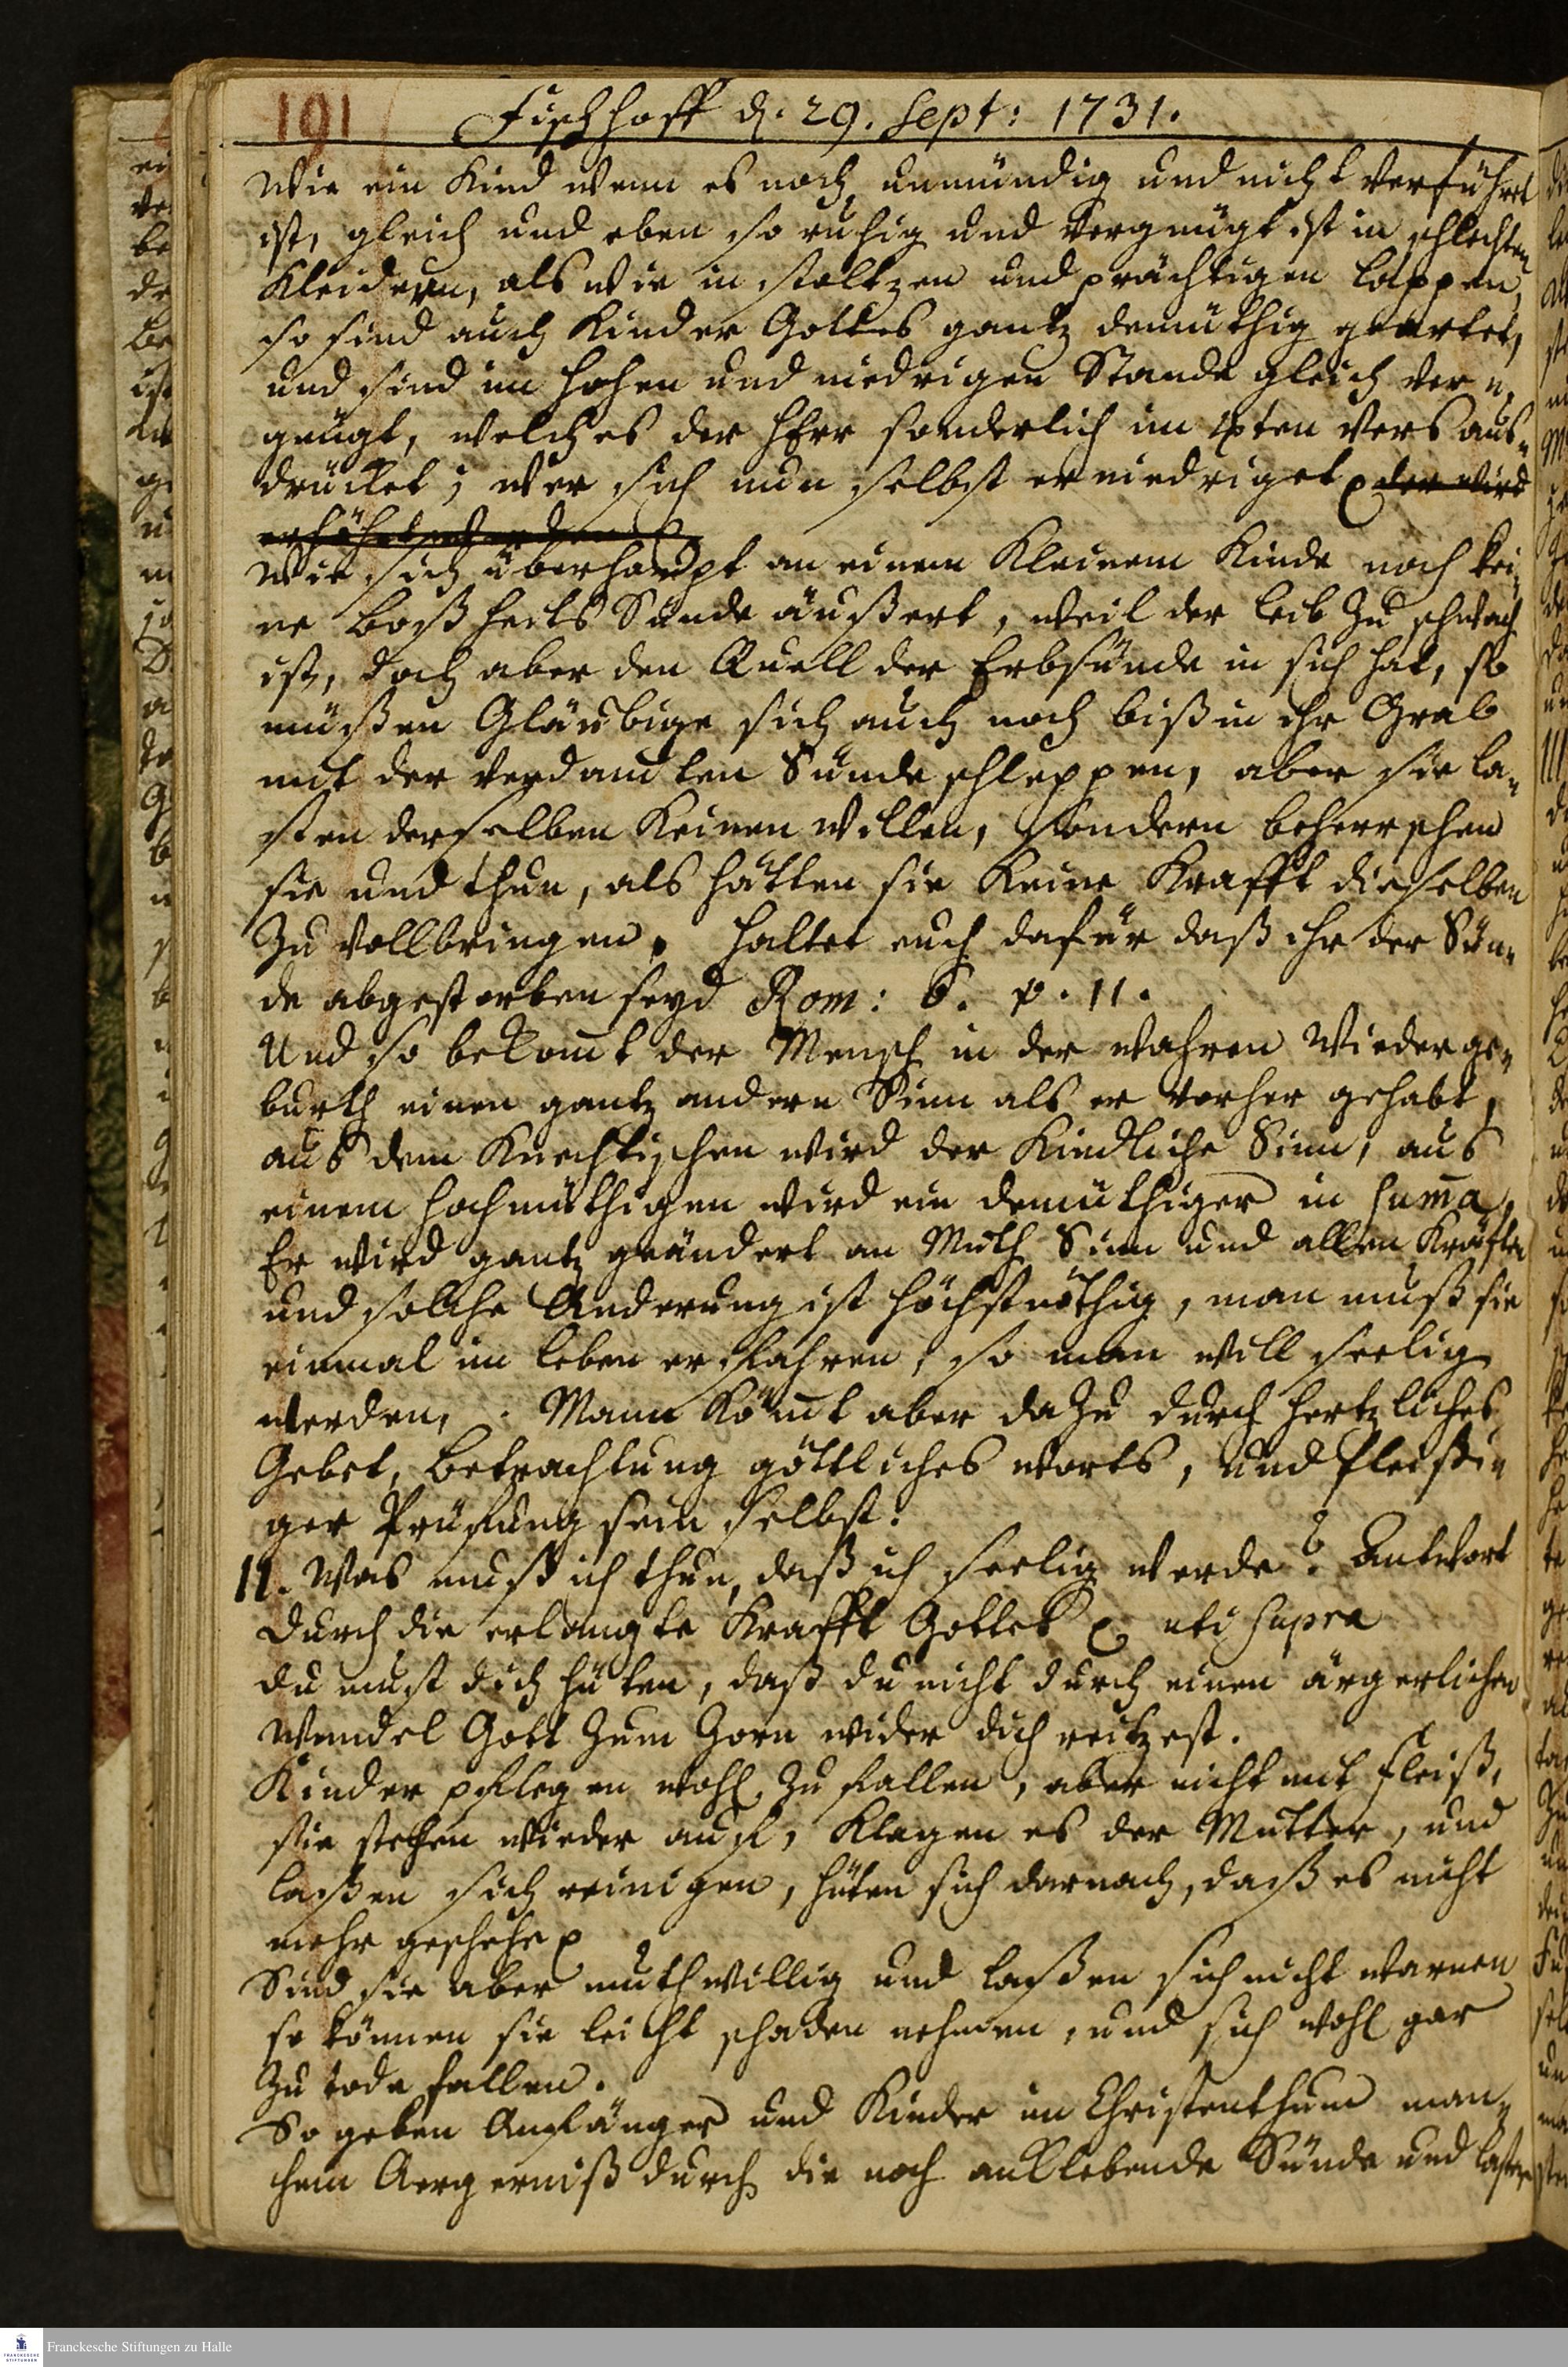 191
Fischhoff d. 29. Sept: 1731.
Wie ein Kind wenn es noch unmündig und nicht verführt
ist, gleich und eben so ruhig und vergnügt ist in schlechten
Kleidern, als wie in stoltzen und prächtigen Lappen,
so sind auch Kinder Gottes gantz demüthig geartet,
und sind im hohen und niedrigen Stande gleich ver„
gnügt, welches der HErr sonderlich im 4ten Vers aus„
drücket; wer sich nun selbst erniedriget der wird
erhöhet werden
Wie sich überhaupt an einem Kleinem Kinde noch kei„
ne Boßheits Sünde äußert, weil der Leib zu schwach
ist, doch aber den Quell der Erbsünde in sich hat, so
müßen Gläubige sich auch noch biß in ihr Grab
mit der verdamten Sünde schleppen, aber sie la„
ßen derselben Keinen willen, sondern beherrschen
sie und thun, als hätten sie Keine Krafft dieselben
zu vollbringen. Haltet euch dafür daß ihr der Sün„
de abgestorben seyd Rom: 6. v. 11.
Und so bekomt der Mensch in der wahren Wiederge„
burth einen gantz andern Sinn als er vorher gehabt,
aus dem Knechtischen wird der Kindliche Sinn, aus
einem hochmüthigen wird ein demüthiger in suma,
Er wird gantz geändert an Muth Sinn und allen Kräften
und solche Änderung ist höchstnöthig, man muß sie
einmal im Leben erfahren, so man will seelig
werden. Mann Kömt aber dazu durch hertzliches
Gebet, Betrachtung göttliches Worts, und fleißi„
ger Prüfung sein selbst.
11. Was muß ich thun, daß ich seelig werde? Antwort
Durch die erlangte Krafft Gottes uti supra
du must dich hüten, daß du nicht durch einen ärgerlichen
Wandel Gott zum Zorn wider dich reitzest.
Kinder pflegen wohl zu fallen, aber nicht mit Fleiß,
sie stehen wieder auf, Klagen es der Mutter, und
laßen sich reinigen, hüten sich darnach, daß es nicht
mehr geschehe
Sind sie aber muthwillig und laßen sich nicht warnen
so können sie leicht schaden nehmen, und sich wohl gar
zu tode fallen.
So geben Anfänger und Kinder im Christenthum man„
chem Aergerniß durch die noch anklebende Sünde und
Franckesche Stiftungen zu Halle